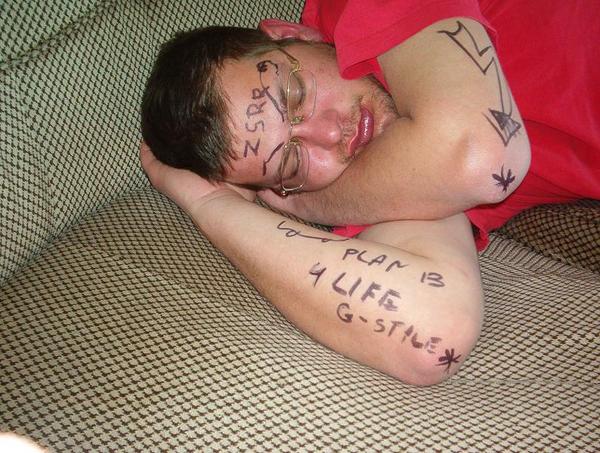 ZSRR
PLAN B
4 LIFE
G-STILE